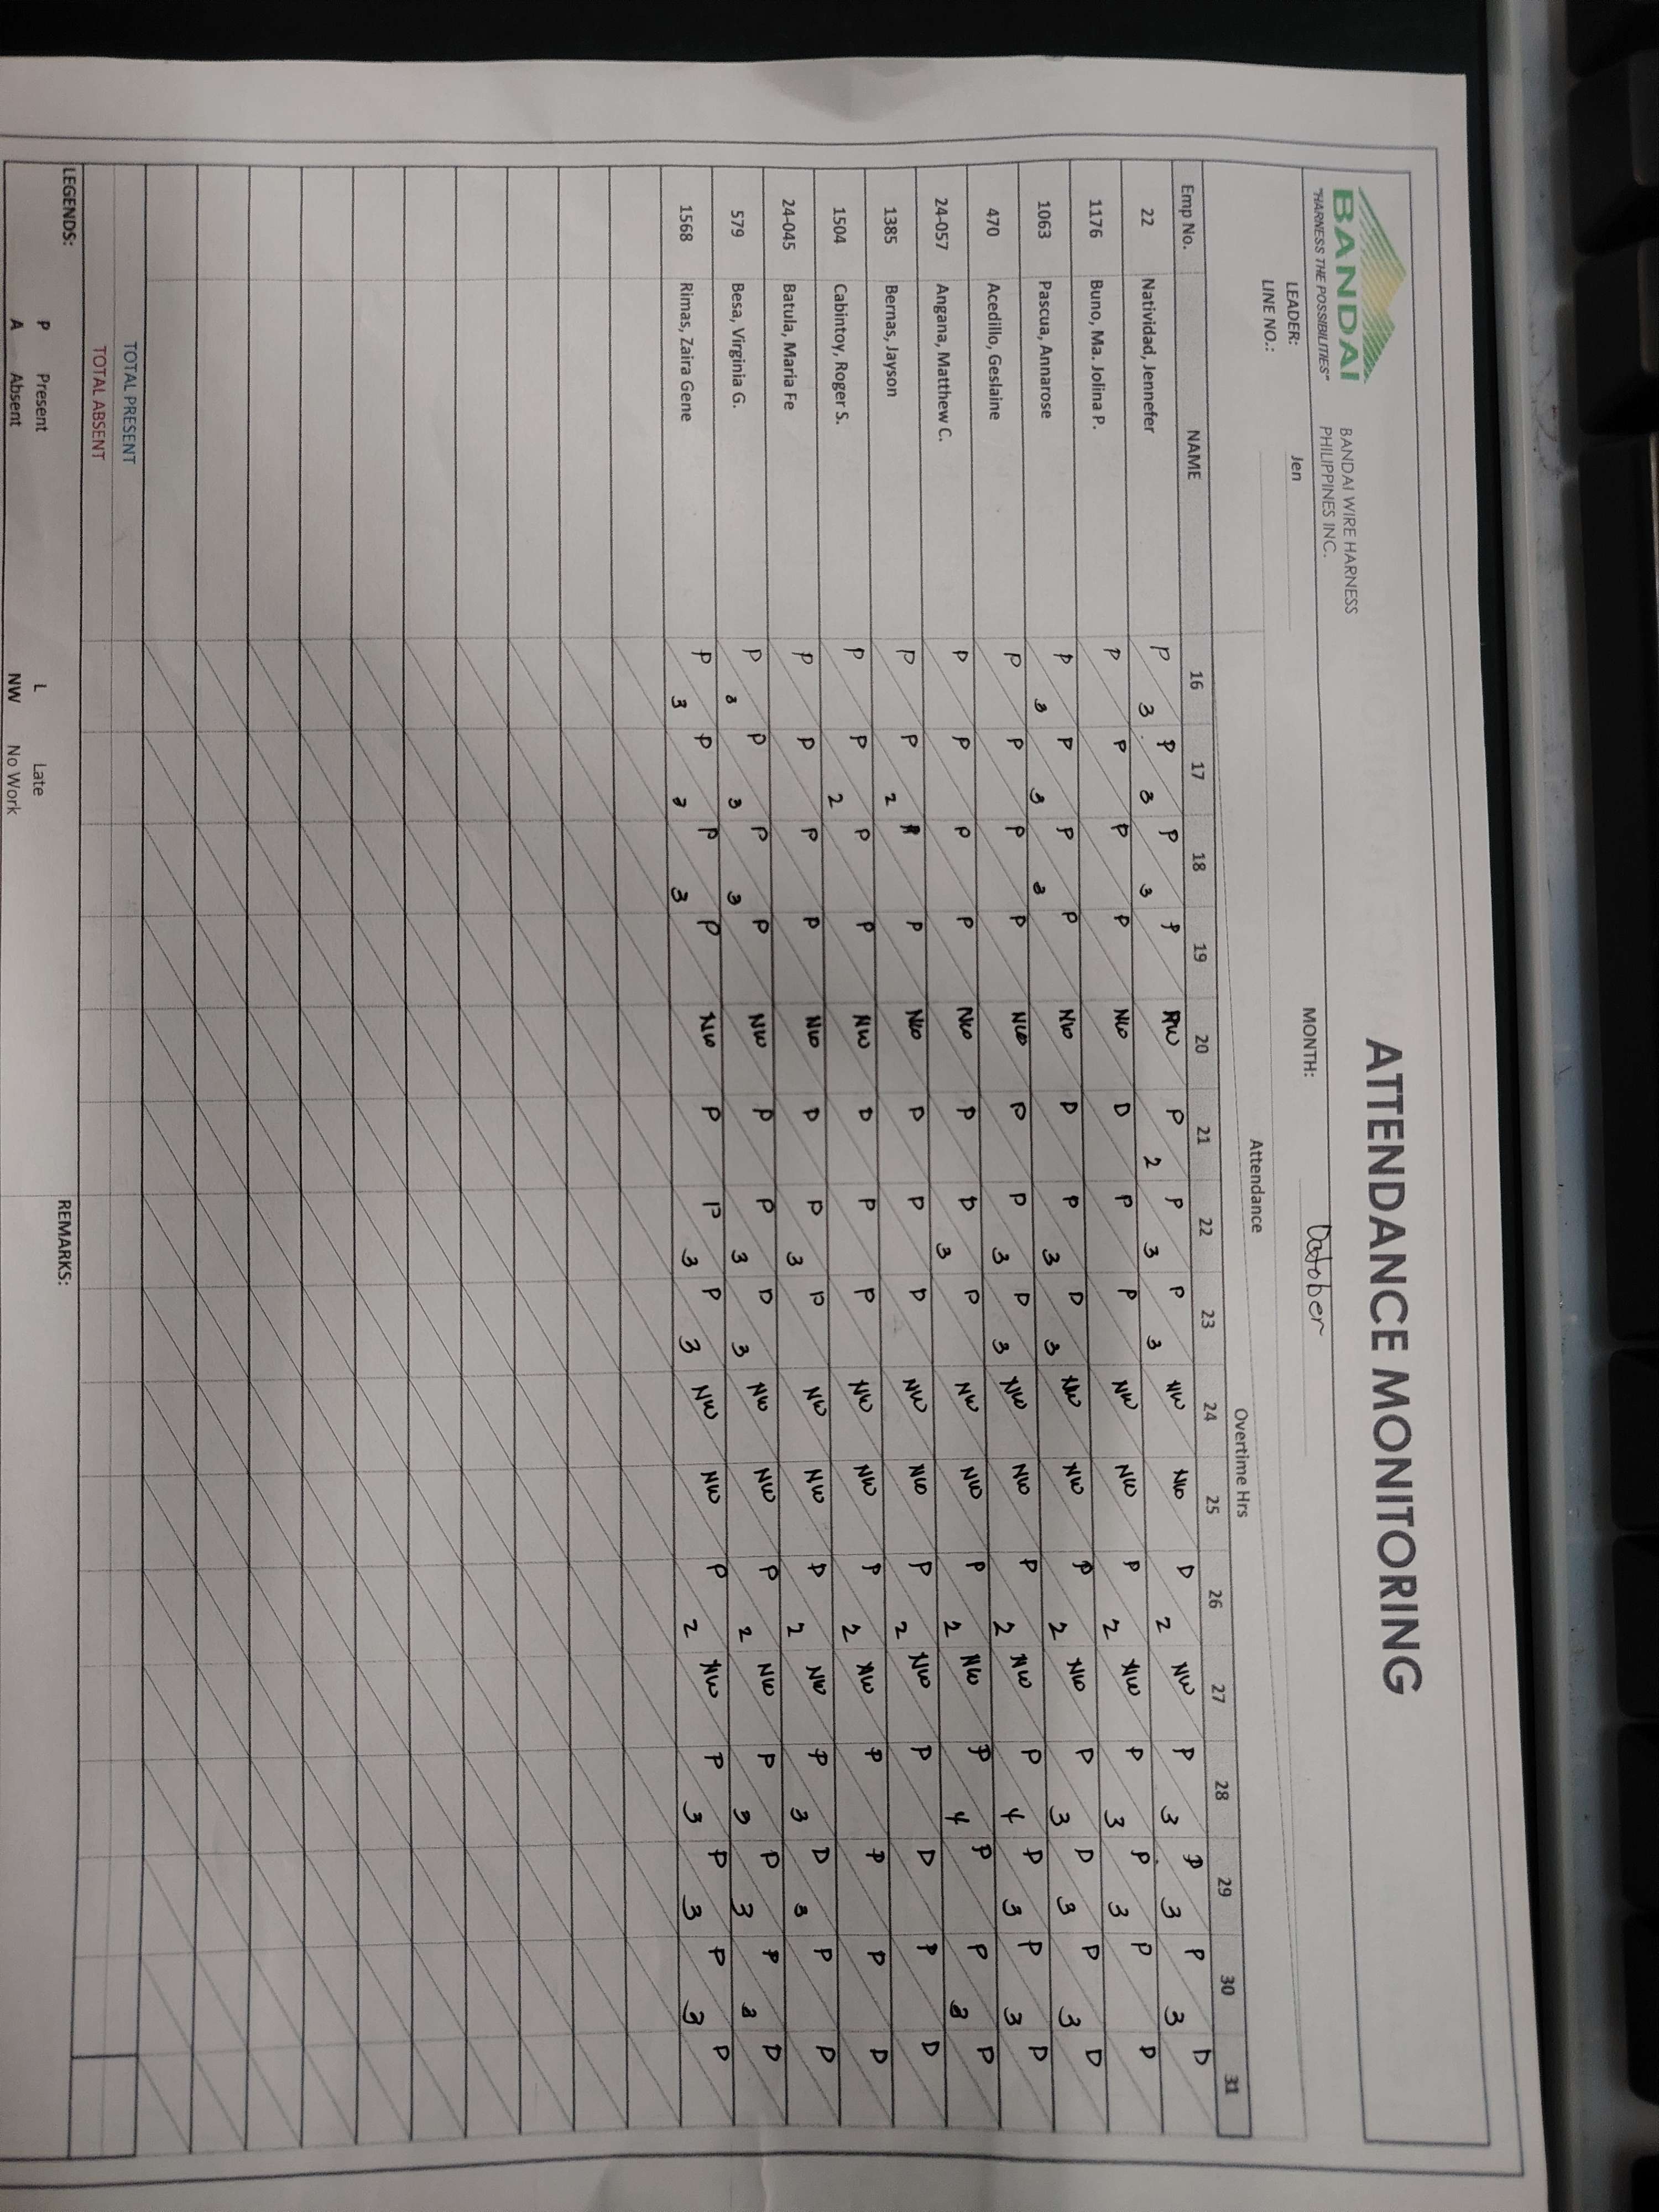 BANDAI
"HARNESS THE POSSIBILITIES"
BANDAI WIRE HARNESS
PHILIPPINES INC.
ATTENDANCE MONITORING
LEADER: Jen
MONTH: October
LINE NO.:
Attendance
Overtime Hrs
Emp No. NAME 16 17 18 19 20 21 22 23 24 25 26 27 28 29 30 31
22 Natividad, Jennefer P 3 P 3 P 3 P NW P 2 P 3 P 3 NW NW P 2 NW P 3 P 3 P 3 P
1176 Buno, Ma. Jolina P. P P P P NW P P P NW NW P 2 NW P 3 P 3 P P
1063 Pascua, Annarose P 3 P 3 P 3 P NW P P 3 P 3 NW NW P 2 NW P 3 P 3 P 3 P
470 Acedillo, Geslaine P P P P NW P P 3 P 3 NW NW P 2 NW P 4 P 3 P 3 P
24-057 Angana, Matthew C. P P P P NW P P 3 P NW NW P 2 NW P 4 P P 3 P
1385 Bernas, Jayson P P 2 P P NW P P P NW NW P 2 NW P P P P
1504 Cabintoy, Roger S. P P 2 P P NW P P P NW NW P 2 NW P P P P
24-045 Batula, Maria Fe P P P P NW P P 3 P NW NW P 2 NW P 3 P 3 P P
579 Besa, Virginia G. P 3 P 3 P 3 P NW P P 3 P 3 NW NW P 2 NW P 3 P 3 P 3 P
1568 Rimas, Zaira Gene P 3 P 3 P 3 P NW P P 3 P 3 NW NW P 2 NW P 3 P 3 P 3 P
TOTAL PRESENT
TOTAL ABSENT
LEGENDS: REMARKS:
P Present L Late
A Absent NW No Work